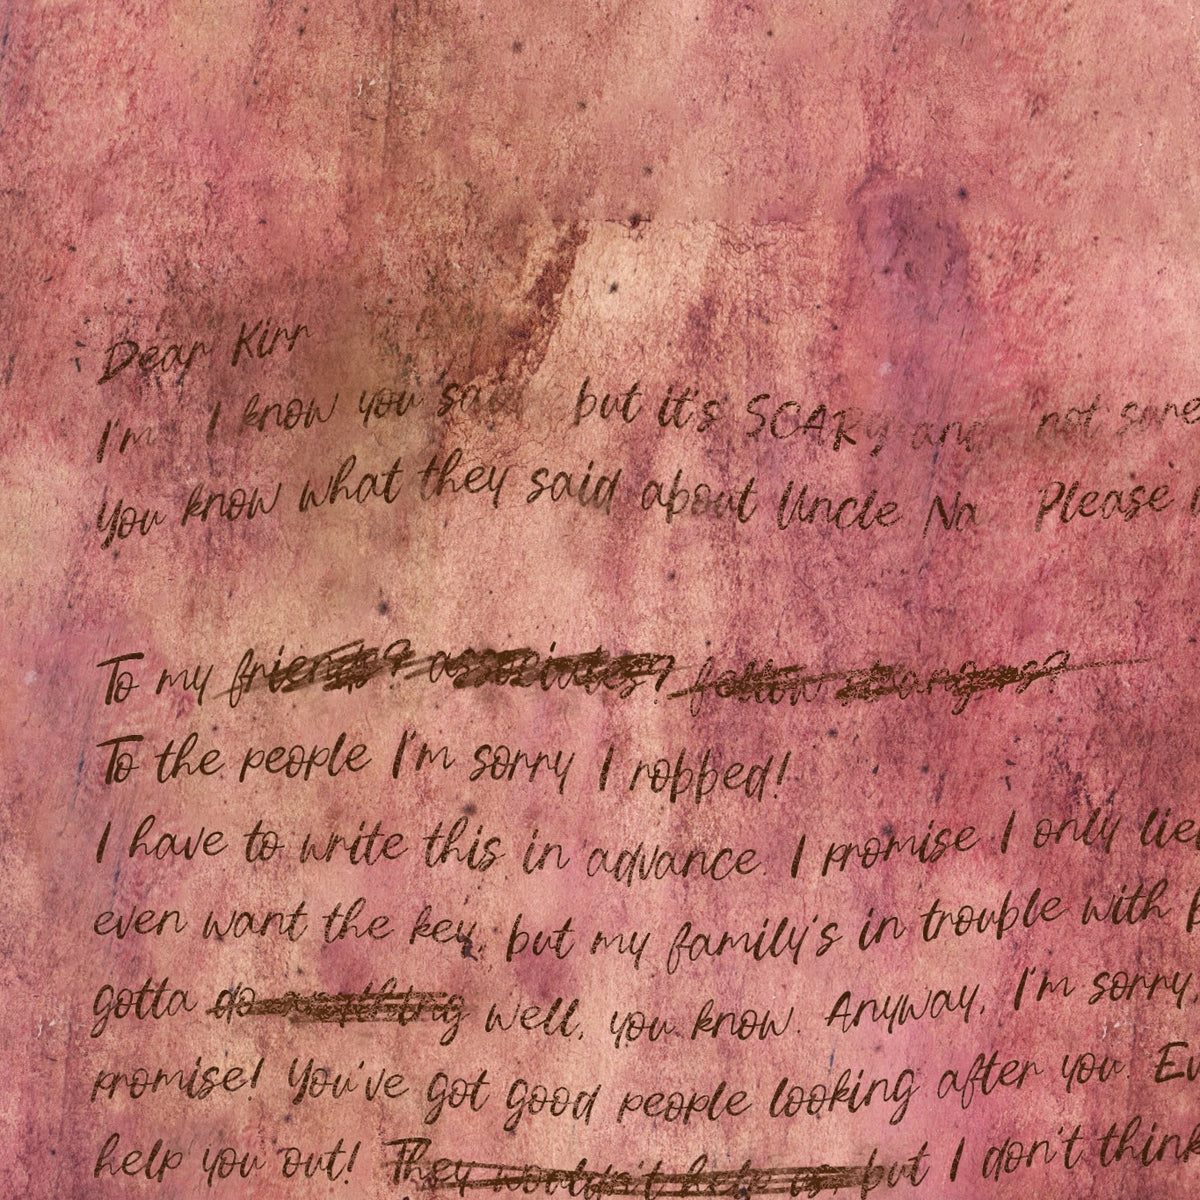 Dear Kirr
I'm I know you sai but it's SCARY and not sure
You know what they said about Uncle Na Please
To my friends? associates? fellow strangers?
To the people I'm sorry I robbed!
I have to write this in advance. I promise I only lie
even want the key, but my family's in trouble with
gotta do anything well, you know. Anyway, I'm sorry,
promise! You've got good people looking after you. Ev
help you out! They wouldn't help us, but I don't think